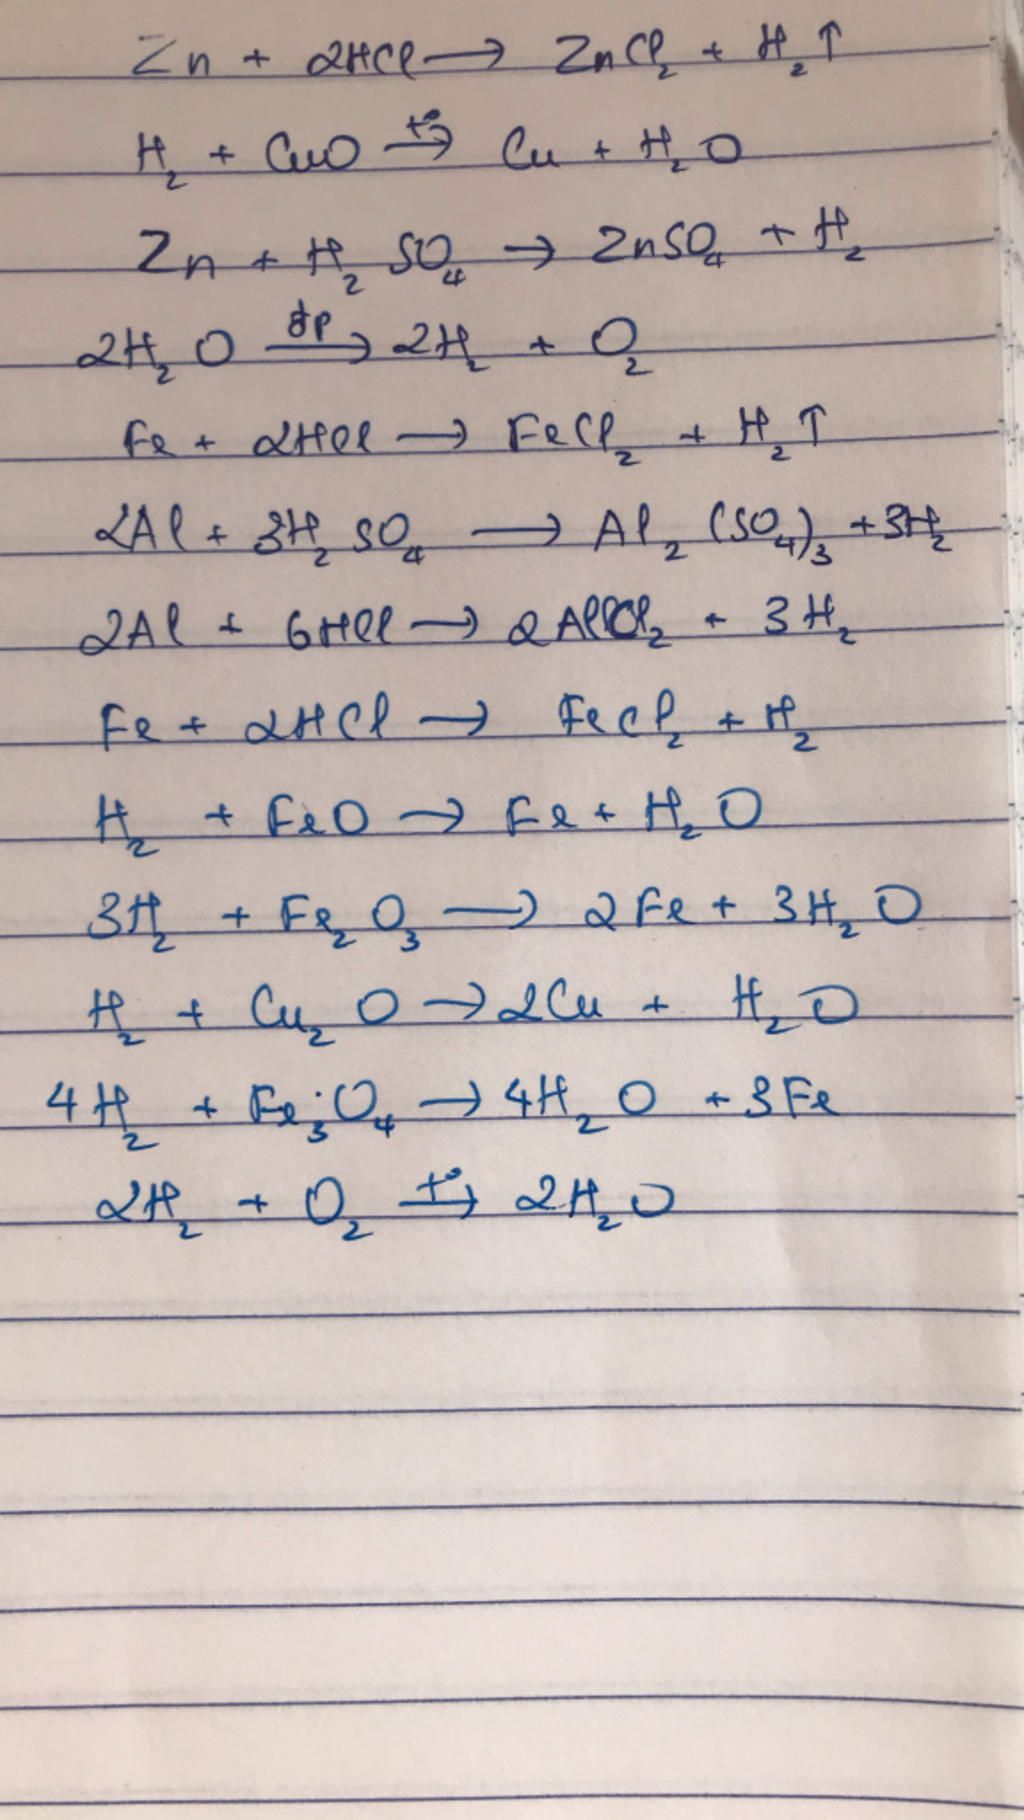 Zn + 2HCl → ZnCl₂ + H₂↑
H₂ + CuO t°→ Cu + H₂O
Zn + H₂SO₄ → ZnSO₄ + H₂
2H₂O đp→ 2H₂ + O₂
Fe + 2HCl → FeCl₂ + H₂↑
2Al + 3H₂SO₄ → Al₂(SO₄)₃ + 3H₂
2Al + 6HCl → 2AlCl₂ + 3H₂
Fe + 2HCl → FeCl₂ + H₂
H₂ + FeO → Fe + H₂O
3H₂ + Fe₂O₃ → 2Fe + 3H₂O
H₂ + Cu₂O → 2Cu + H₂O
4H₂ + Fe₃O₄ → 4H₂O + 3Fe
2H₂ + O₂ t°→ 2H₂O